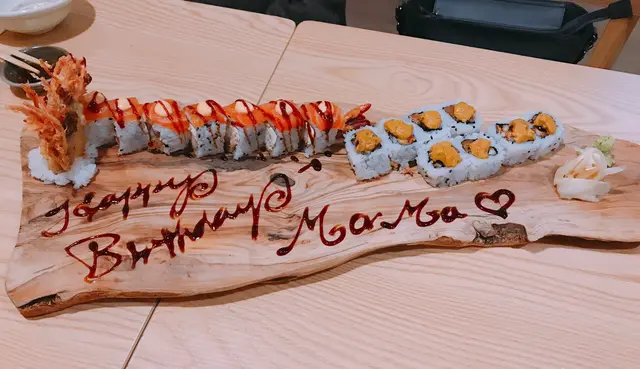 Happy
Birthday MaMa ♡